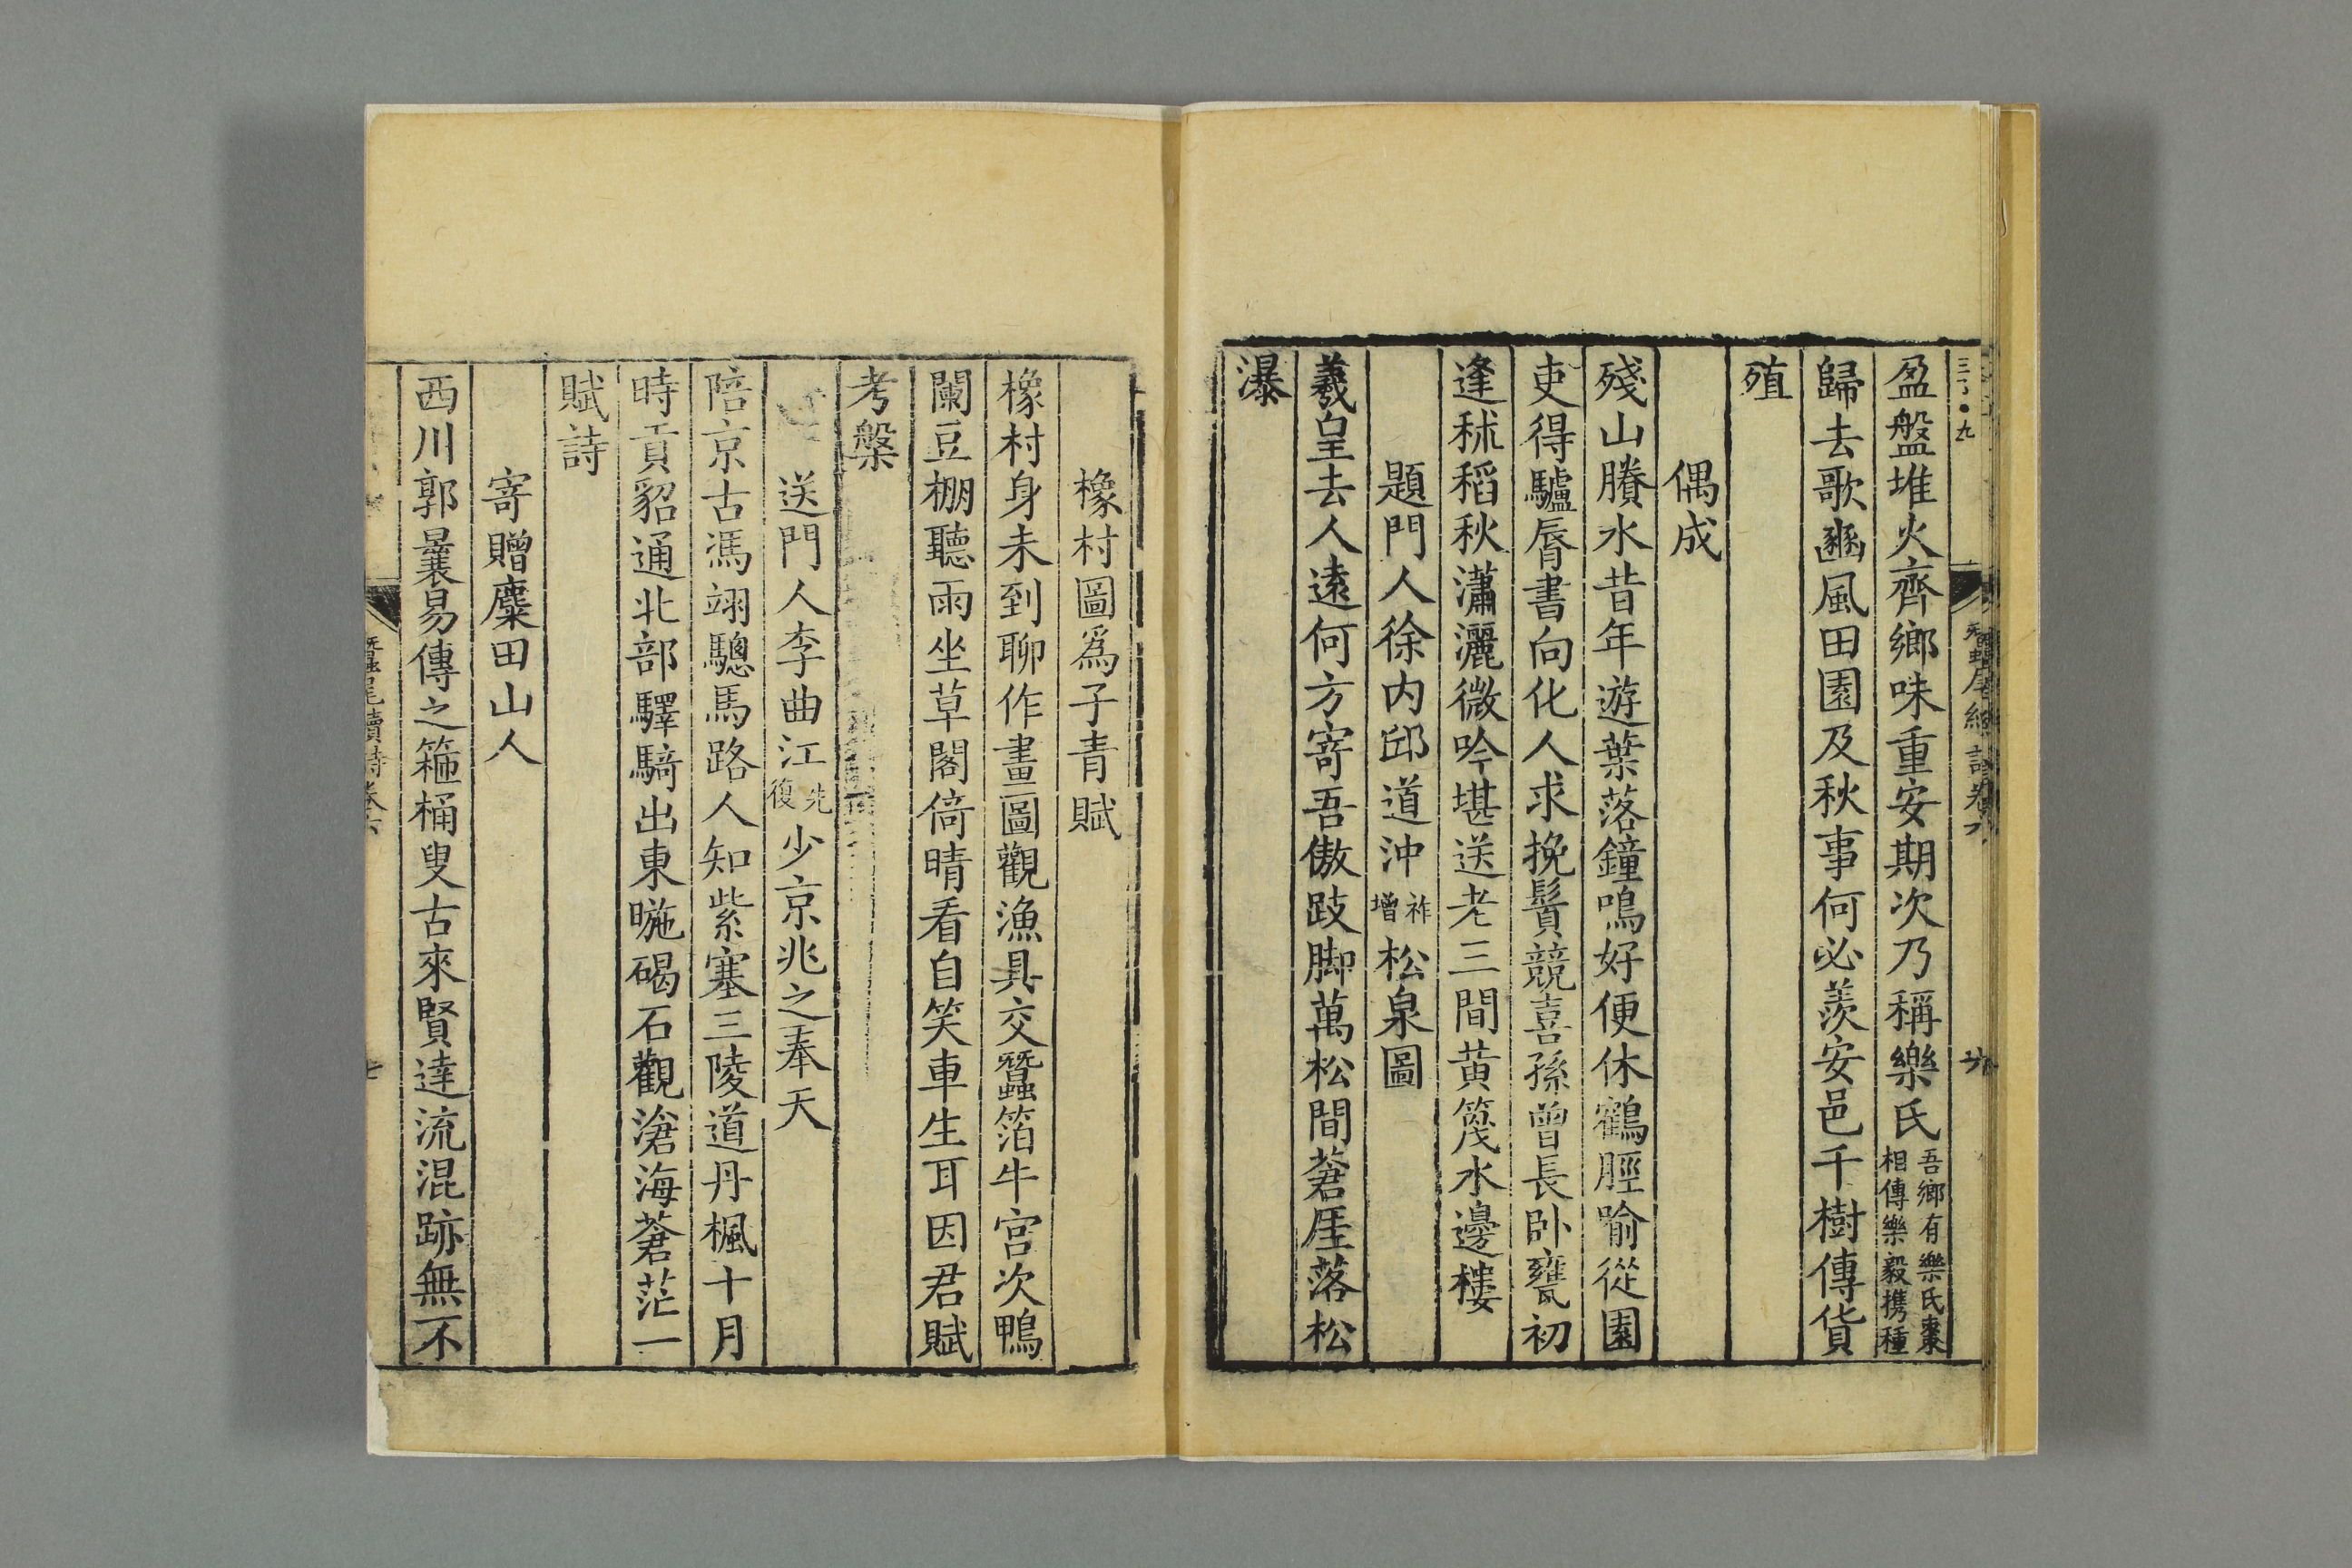 盈盤堆火齊鄉味重安期次乃稱樂氏吾鄉有樂氏棗相傳樂毅携種
歸去歌豳風田園及秋事何必羨安邑千樹傳貨
殖
偶成
殘山賸水昔年遊葉落鐘鳴好便休鶴脛喻從園
吏得驢脣書向化人求挽鬚競喜孫曾長卧甕初
逢秫稻秋瀟灑微吟堪送老三間黄篾水邊樓
題門人徐内邱道沖祚增松泉圖
羲皇去人遠何方寄吾傲跂脚萬松間蒼厓落松
瀑
橡村圖爲子青賦
橡村身未到聊作畫圖觀漁具交蠶箔牛宫次鴨
闌豆棚聽雨坐草閣倚晴看自笑車生耳因君賦
考槃
送門人李曲江先復少京兆之奉天
陪京古馮翊驄馬路人知紫塞三陵道丹楓十月
時貢貂通北部驛騎出東暆碣石觀滄海蒼茫一
賦詩
寄贈麋田山人
西川郭曩易傳之箍桶叟古來賢達流混跡無不
蠶尾續詩卷六
七